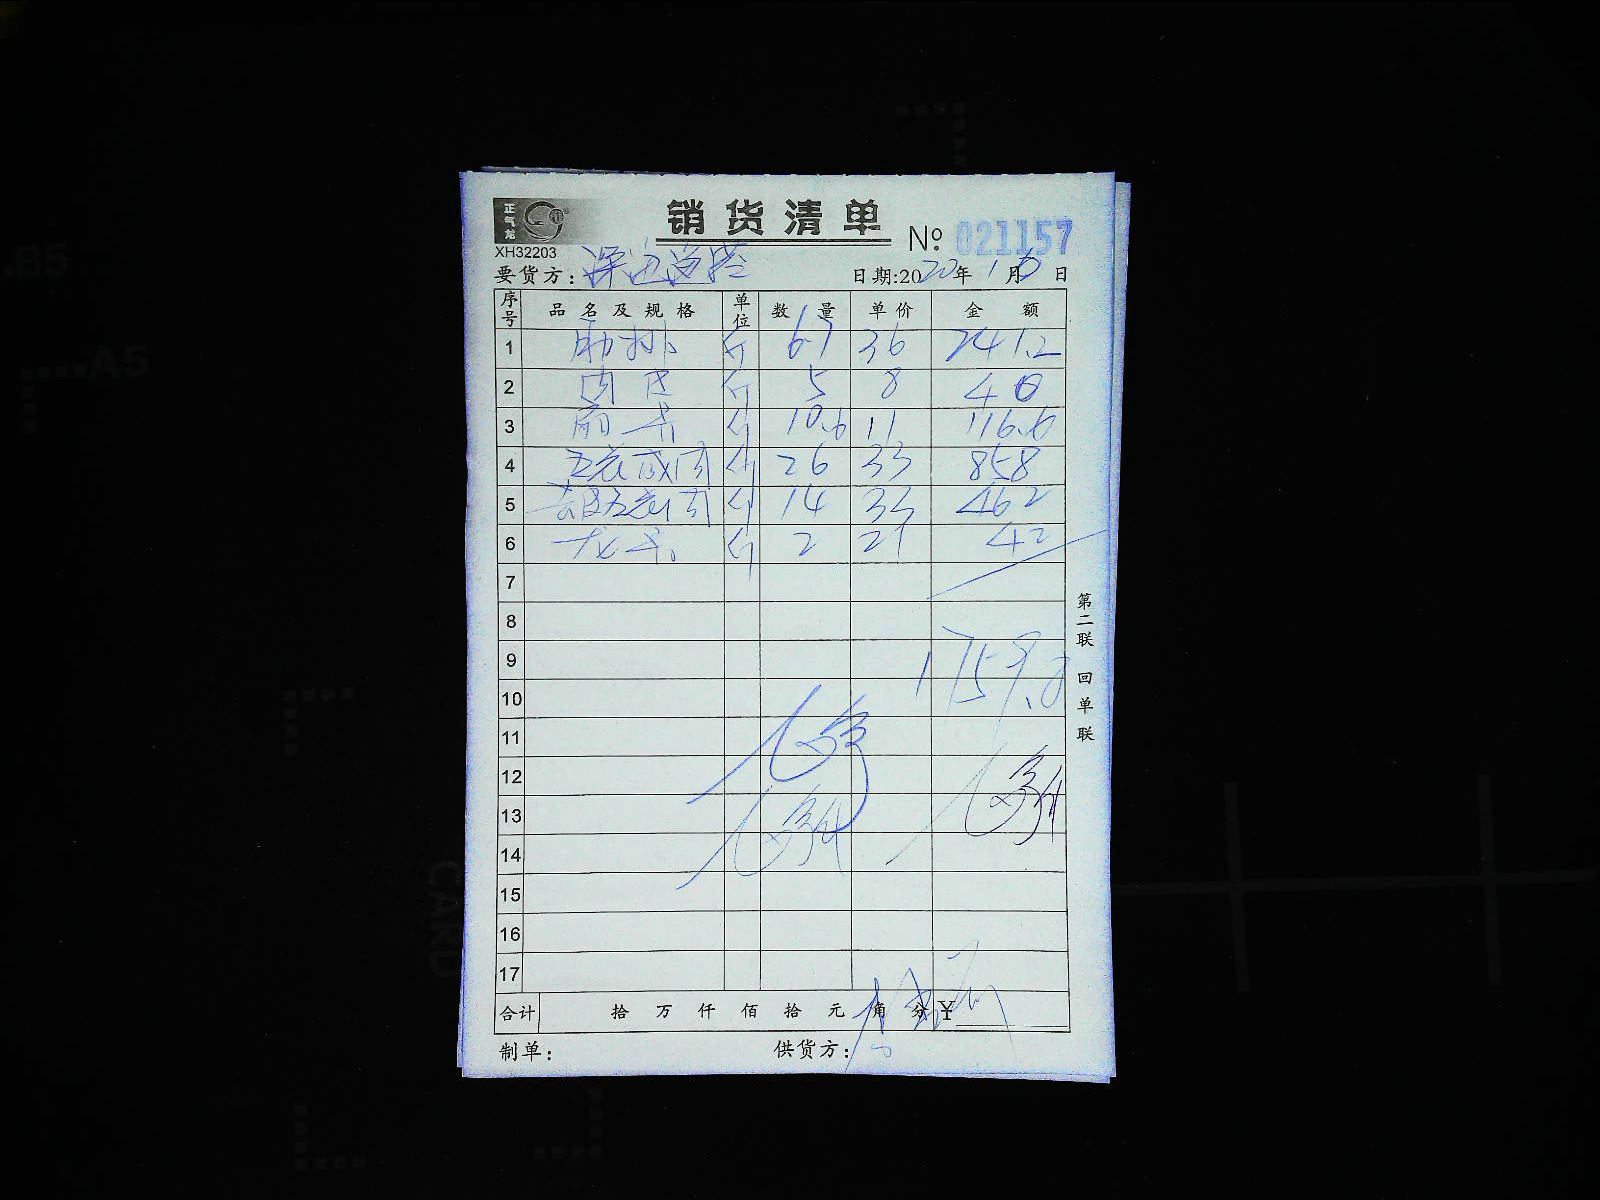 正气龙
销货清单
XH32203
№ 021157
要货方：
日期:2020年1月 日
序号 品名及规格 单位 数量 单价 金额
1 肋排 斤 6.7 36 241.2
2 肉皮 斤 5 8 40
3 斤 10.6 11 116.6
4 五花咸肉 斤 26 33 858
5 斤 14 33 462
6 龙骨 斤 2 21 42
7
8
9 1759.8
10
11
12
13
14
15
16
17
合计 拾 万 仟 佰 拾 元 角 分 ¥
制单： 供货方：
第二联 回单联
B5
A5
CARD